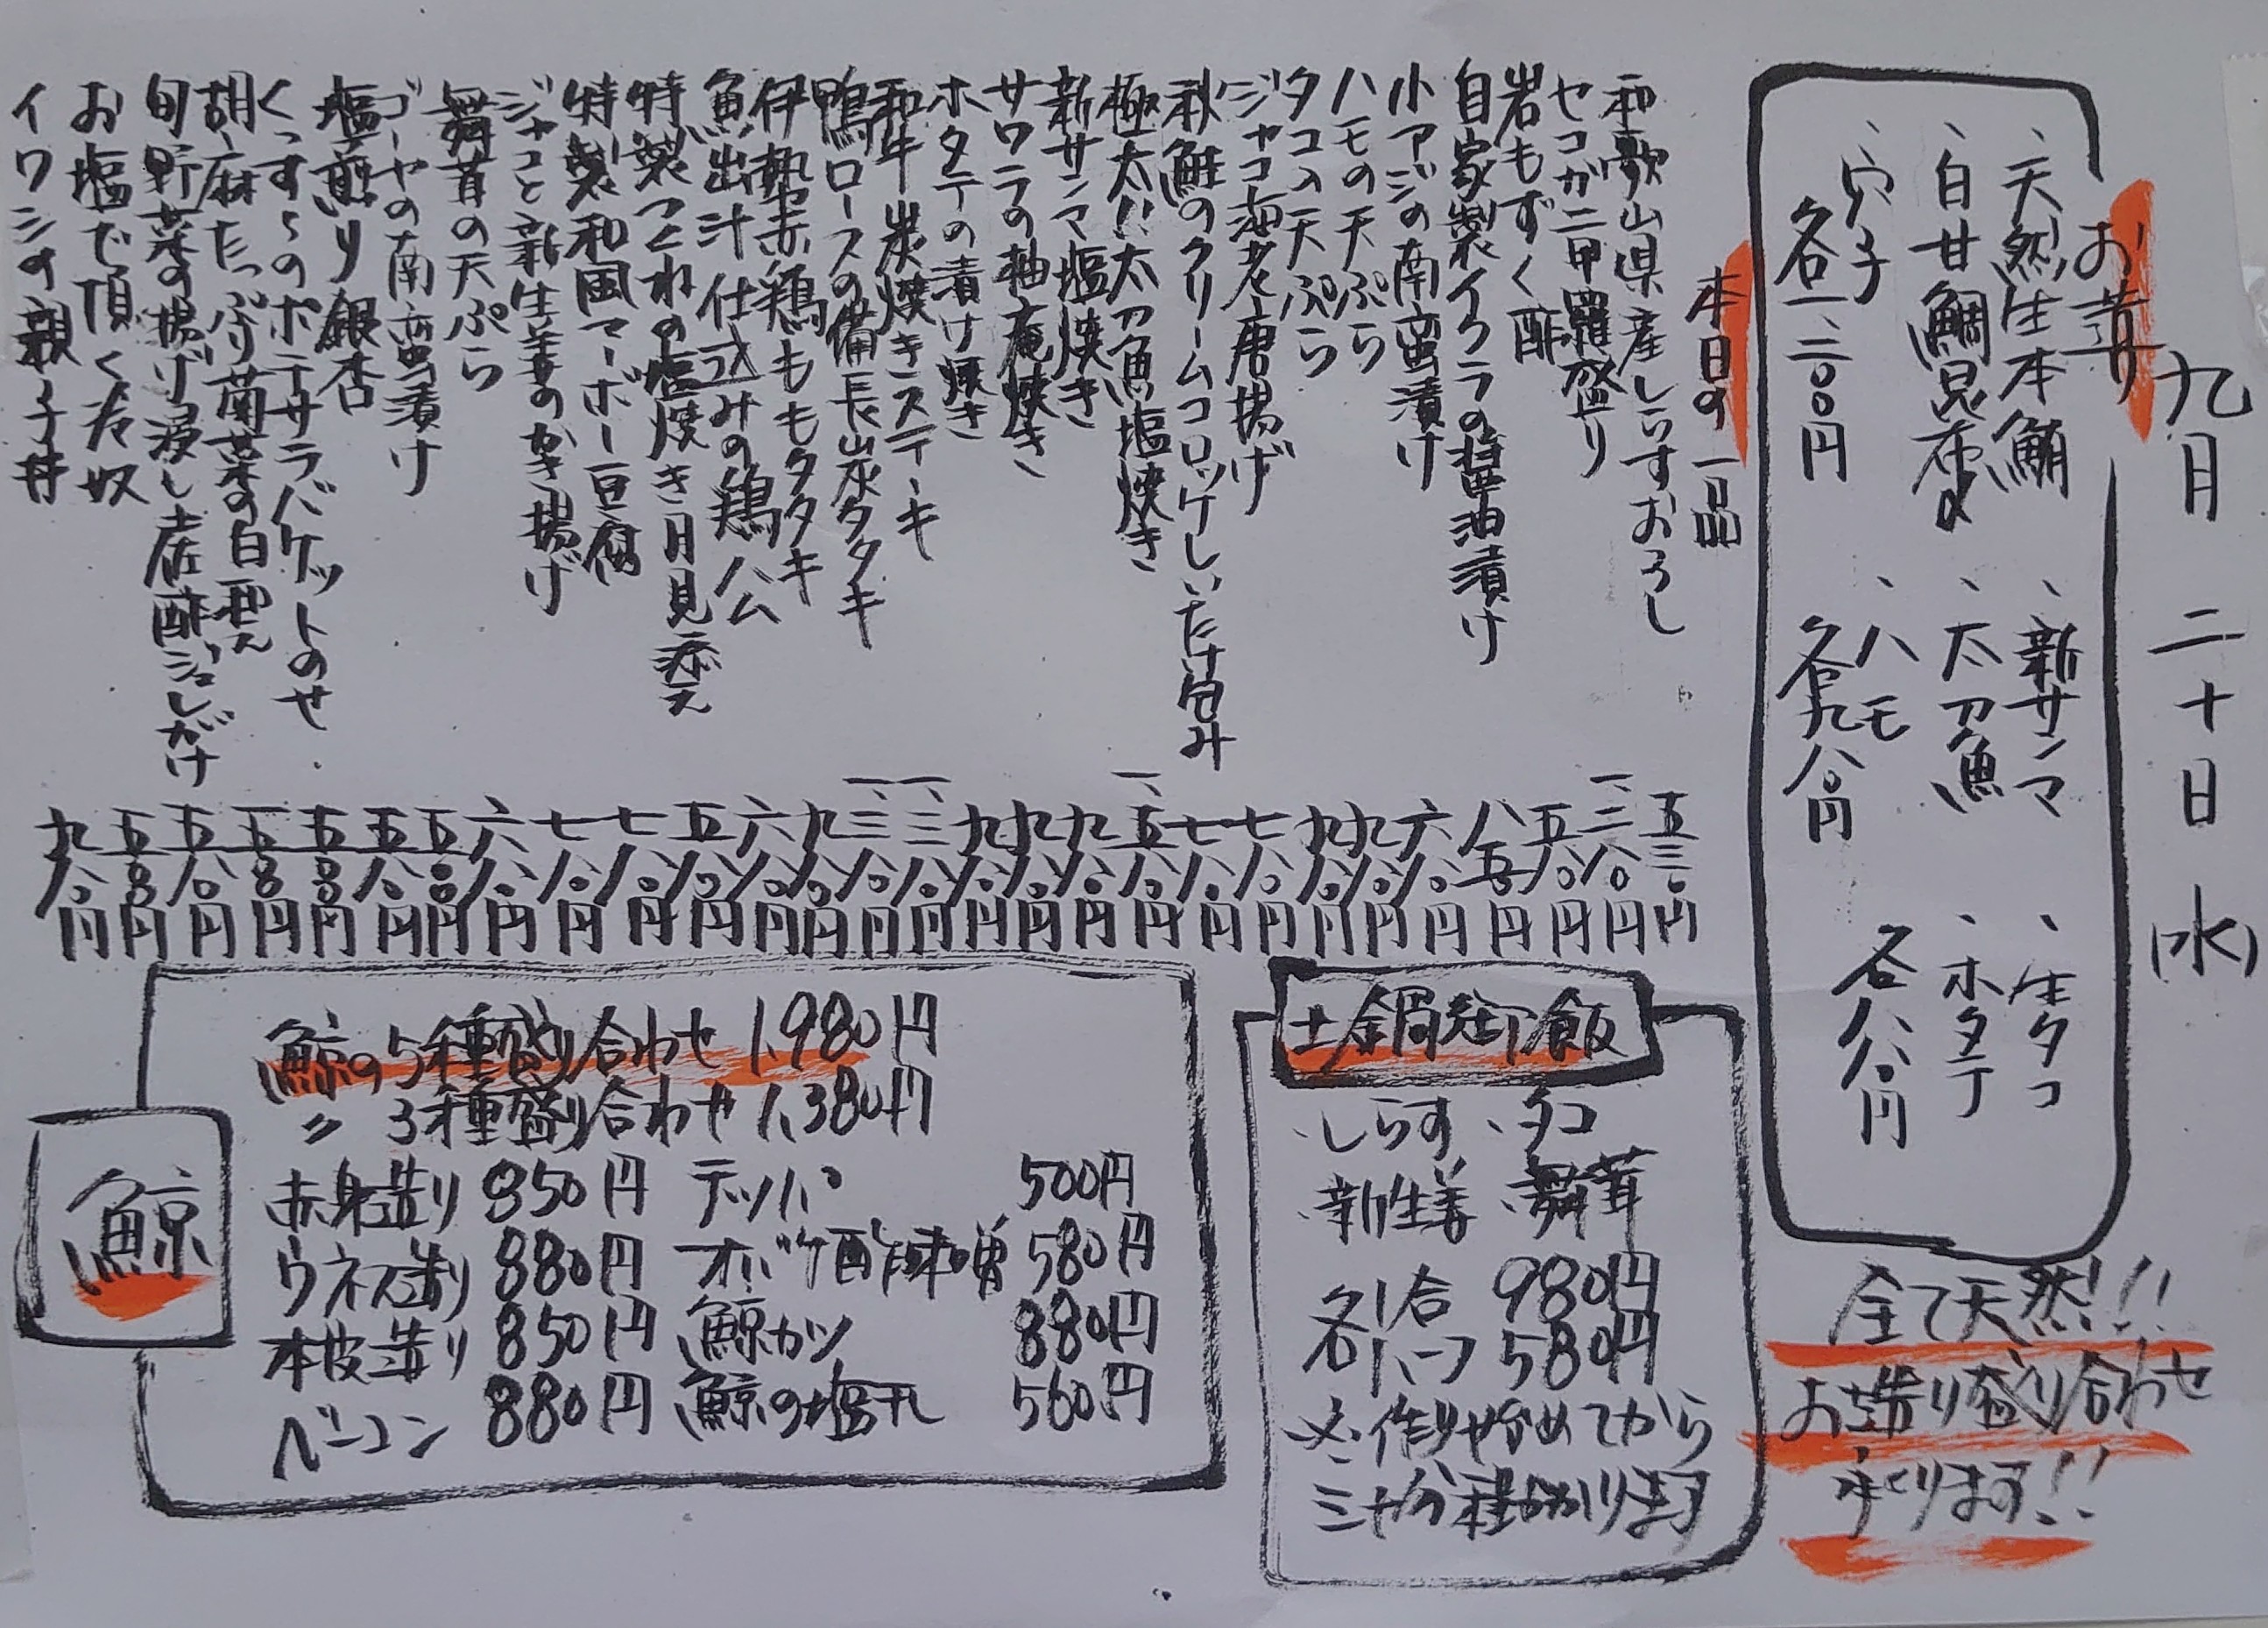 九月二十日(水)
お造り
、天然生本鮪
、白甘鯛昆布〆
、穴子
各一、二〇〇円
、新サンマ
、太刀魚
、ハモ
各九八〇円
、生タコ
、ホタテ
各八八〇円
全て天然!!
お造り盛り合わせ
承ります!!
本日の一品
和歌山県産しらすおろし 五三〇円
セコガニ甲羅盛り 一、三八〇円
岩もずく酢 五八〇円
自家製イクラの醤油漬け 八五〇円
小アジの南蛮漬け 六八〇円
ハモの天ぷら 九八〇円
タコの天ぷら 九八〇円
ジャコ海老唐揚げ 七八〇円
秋鮭のクリームコロッケしいたけ包み 七八〇円
極太!!太刀魚塩焼き 一、五八〇円
新サンマ塩焼き 九八〇円
サワラの柚庵焼き 九八〇円
ホタテの漬け焼き 九八〇円
和牛炭焼きステーキ 一、三八〇円
鴨ロースの備長炭タタキ 一、三八〇円
伊勢赤鶏ももタタキ 九八〇円
魚出汁仕込みの鶏ハム 六八〇円
特製つくねの塩焼き月見添え 五八〇円
特製和風マーボー豆腐 七八〇円
ジャコと新生姜のかき揚げ 七八〇円
舞茸の天ぷら 六八〇円
ゴーヤの南蛮漬け 五〇〇円
塩煎り銀杏 五八〇円
くっすぅのポテサラバケットのせ 五五〇円
胡麻たっぷり菊菜の白和え 五八〇円
旬野菜の揚げ浸し土佐酢ジュレがけ 五八〇円
お塩で頂く冷奴 五〇〇円
イワシの親子丼 九八〇円
土鍋御飯
・しらす ・タコ
・新生姜 ・舞茸
各1合 980円
各ハーフ 580円
※作り始めてから
三十分程かかります
鯨
鯨の5種盛り合わせ 1,980円
〃 3種盛り合わせ 1,380円
赤身造り 850円 テッパ 500円
ウネス造り 880円 オバケ酢味噌 580円
本皮造り 850円 鯨カツ 880円
ベーコン 880円 鯨の塩干し 560円